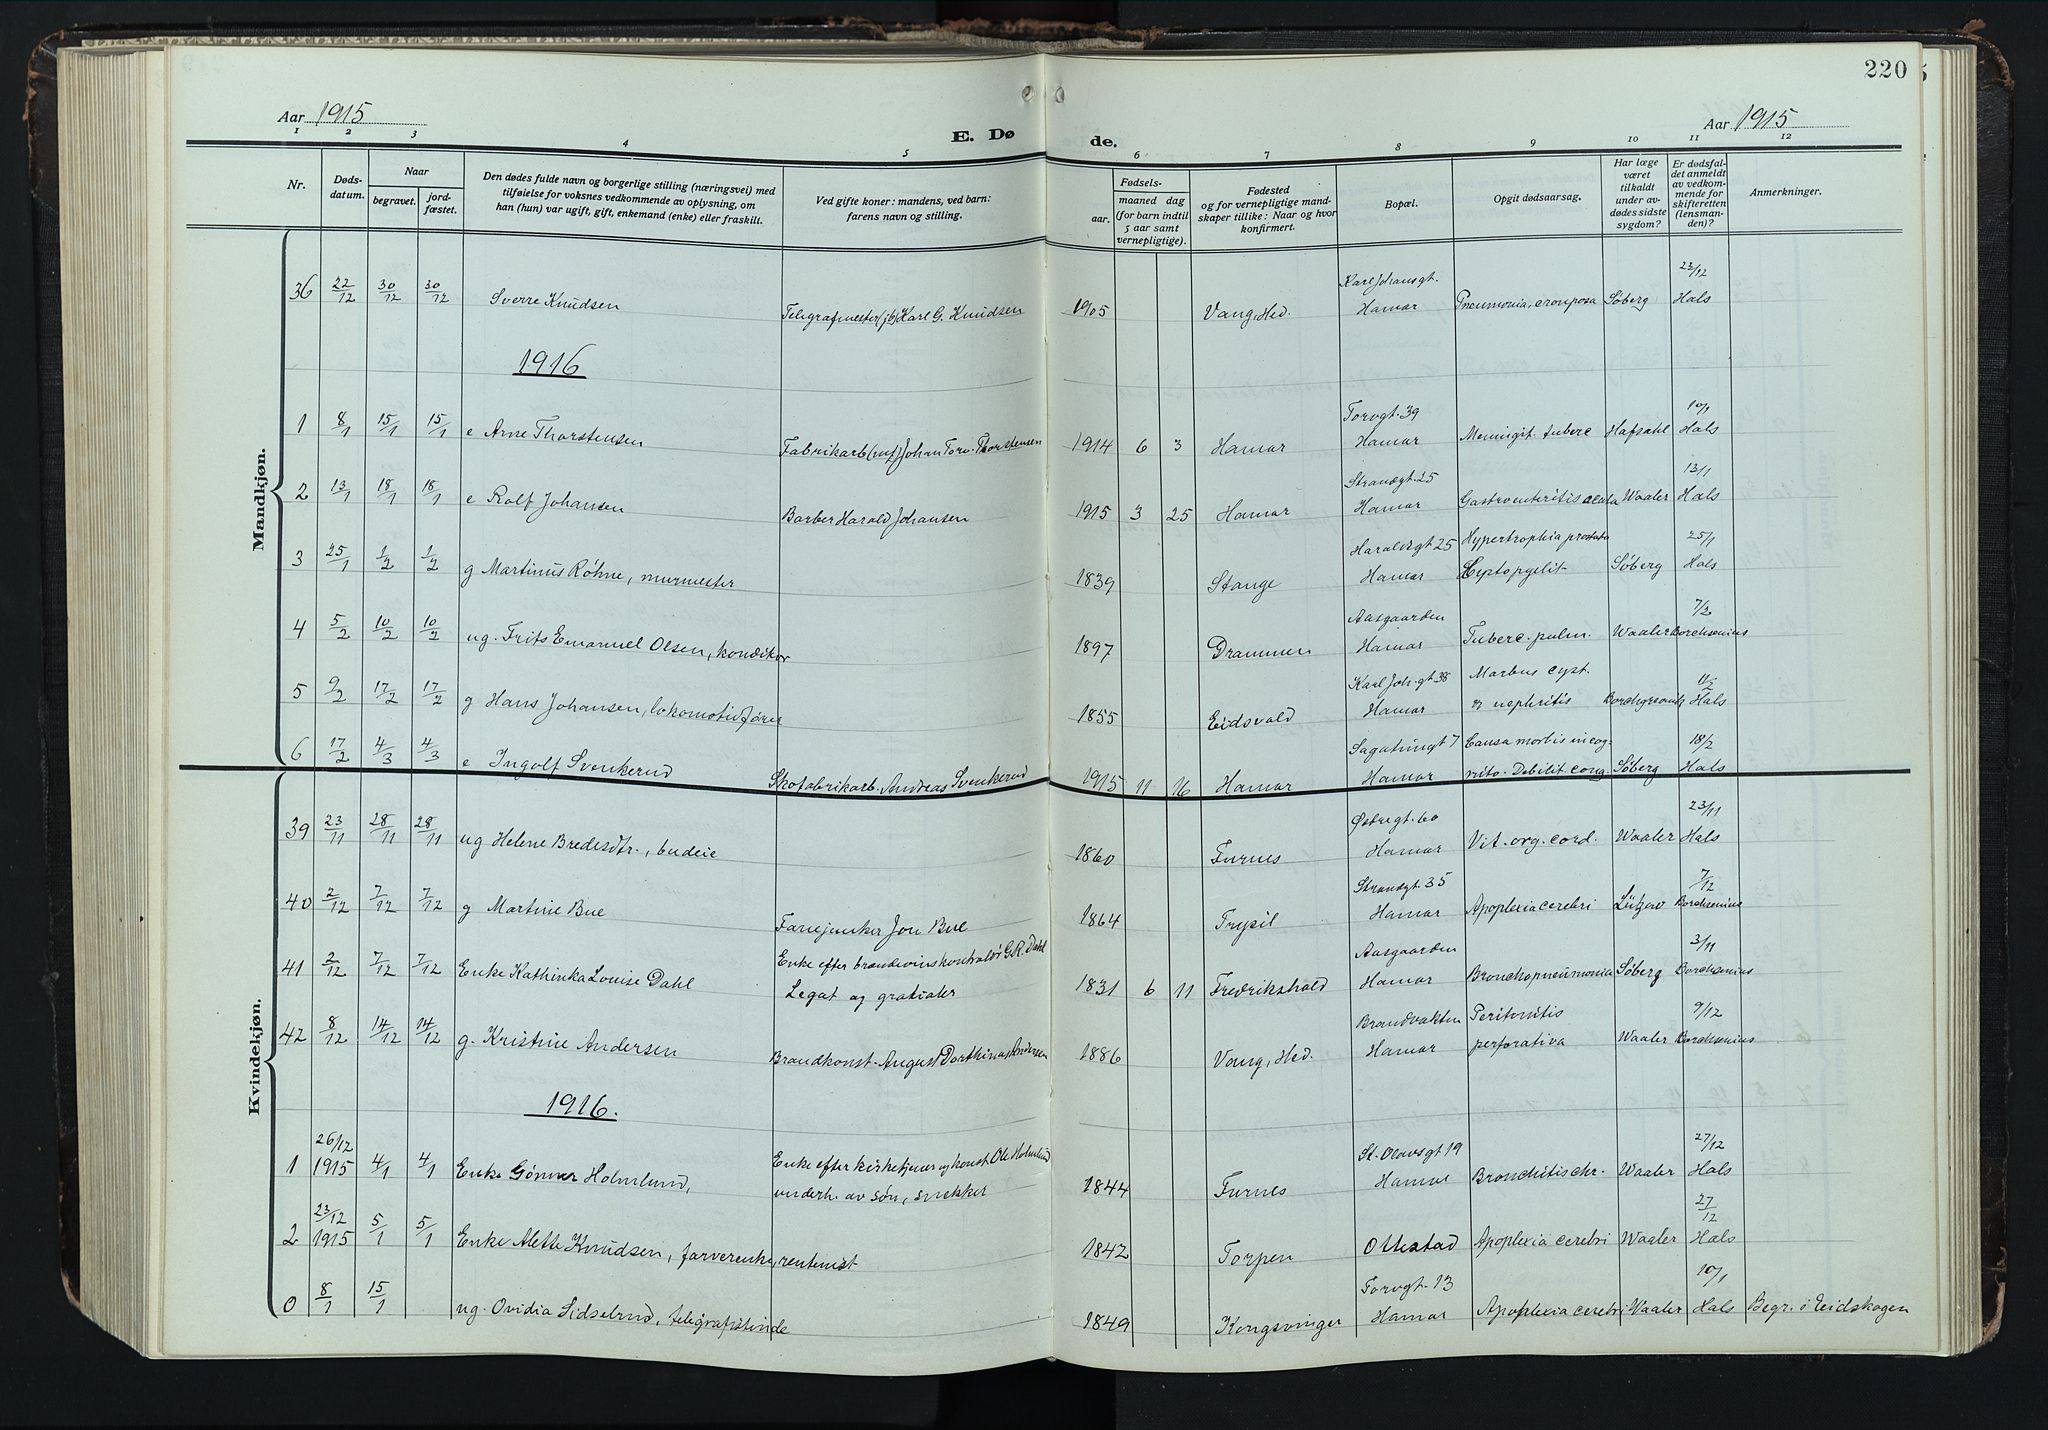 220
Aar 1915
E. Dø
de.
Aar 1915
1 2 3 4 5 6 7 8 9 10 11 12
Nr.
Døds-
datum.
Naar
begravet.
jord-
fæstet.
Den dødes fulde navn og borgerlige stilling (næringsvei) med
tilføielse for voksnes vedkommende av oplysning, om
han (hun) var ugift, gift, enkemand (enke) eller fraskilt.
Ved gifte koner: mandens, ved barn:
farens navn og stilling.
Fødsels-
aar.
maaned dag
(for barn indtil
5 aar samt
vernepligtige).
Fødested
og for vernepligtige mand-
skaper tillike: Naar og hvor
konfirmert.
Bopæl.
Opgit dødsaarsag.
Har læge
været
tilkaldt
under av-
dødes sidste
sygdom?
Er dødsfal-
det anmeldt
av vedkom-
mende for
skifteretten
(lensman-
den)?
Anmerkninger.
Mandkjøn.
36 22/12 30/12 30/12 Sverre Knudsen Telegrafmester (jb) Karl G. Knudsen 1905 Vang, Hed. Karl Johansgt. Hamar Pneumonia, crouposa Søberg 23/12 Hals
1916
1 8/1 15/1 15/1 e Arne Thorstensen Fabrikarb Johan Thorstensen 1914 6 3 Hamar Torvgt. 39 Hamar Meningit. tuberc Hafsahl 10/1 Hals
2 13/1 18/1 18/1 e Rolf Johansen Barber Harald Johansen 1915 3 25 Hamar Strandgt. 25 Hamar Gastroenteritis acuta Waaler 13/1 Hals
3 25/1 1/2 1/2 g Martinus Røhne, murmester 1839 Stange Haraldsgt 25 Hamar Hypertrophia prostata Cystopyelit- Søberg 25/1 Hals
4 5/2 10/2 10/2 ug. Frits Emanuel Olsen, konditor 1897 Drammen Aasgaarden Hamar Tuberc. pulm. Waaler 7/2 Borchsenius
5 9/2 17/2 17/2 g Hans Johansen, lokomotivfører 1855 Eidsvold Karl Joh. gt 38 Hamar Morbus cyst. og nephritis Borchgrevink 11/2 Hals
6 17/2 4/3 4/3 e Ingolf Svenkerud Skofabrikarb. Andreas Svenkerud 1915 11 16 Hamar Sagatungt 7 Hamar Causa mortis incog- nito. Debilit. cong. Søberg 18/2 Hals
Kvindekjøn.
39 23/11 28/11 28/11 ug Helene Bredesdtr., budeie 1860 Furnes Østregt. 60 Hamar Vit. org. cord. Waaler 23/11 Hals
40 2/12 7/12 7/12 g Martine Bue Fanejunker Jon Bue 1864 Trysil Strandgt. 35 Hamar Apoplexia cerebri Lützow 7/12 Borchsenius
41 2/12 7/12 7/12 Enke Kathinka Louise Dahl Enke efter brændevinskontrolør G.R. Dahl Legat og gratialer 1831 6 11 Fredrikshald Aasgaarden Hamar Bronchopneumonia Søberg 3/11 Borchsenius
42 8/12 14/12 14/12 g. Kristine Andersen Brandkonst. August Dorthinas Andersen 1886 Vang, Hed. Brandvakten Hamar Peritonitis perforativa Waaler 9/12 Borchsenius
1916.
1 26/12 1915 4/1 4/1 Enke Gønner Holmlund, Enke efter kirketjener og konst. Ole Holmlund underh. av søn, snekker 1844 Furnes St. Olavsgt 19 Hamar Bronchitis chr. Waaler 27/12 Hals
2 23/12 1915 5/1 5/1 Enke Alette Knudsen, farverenke, rentenist 1842 Torpen Ottestad Apoplexia cerebri Waaler 27/12 Hals
0 8/1 15/1 ug. Ovidia Lidselrud, telegrafistinde 1849 Kongsvinger Torvgt. 13 Hamar Apoplexia cerebri Waaler 10/1 Hals Begr. i Eidskogen